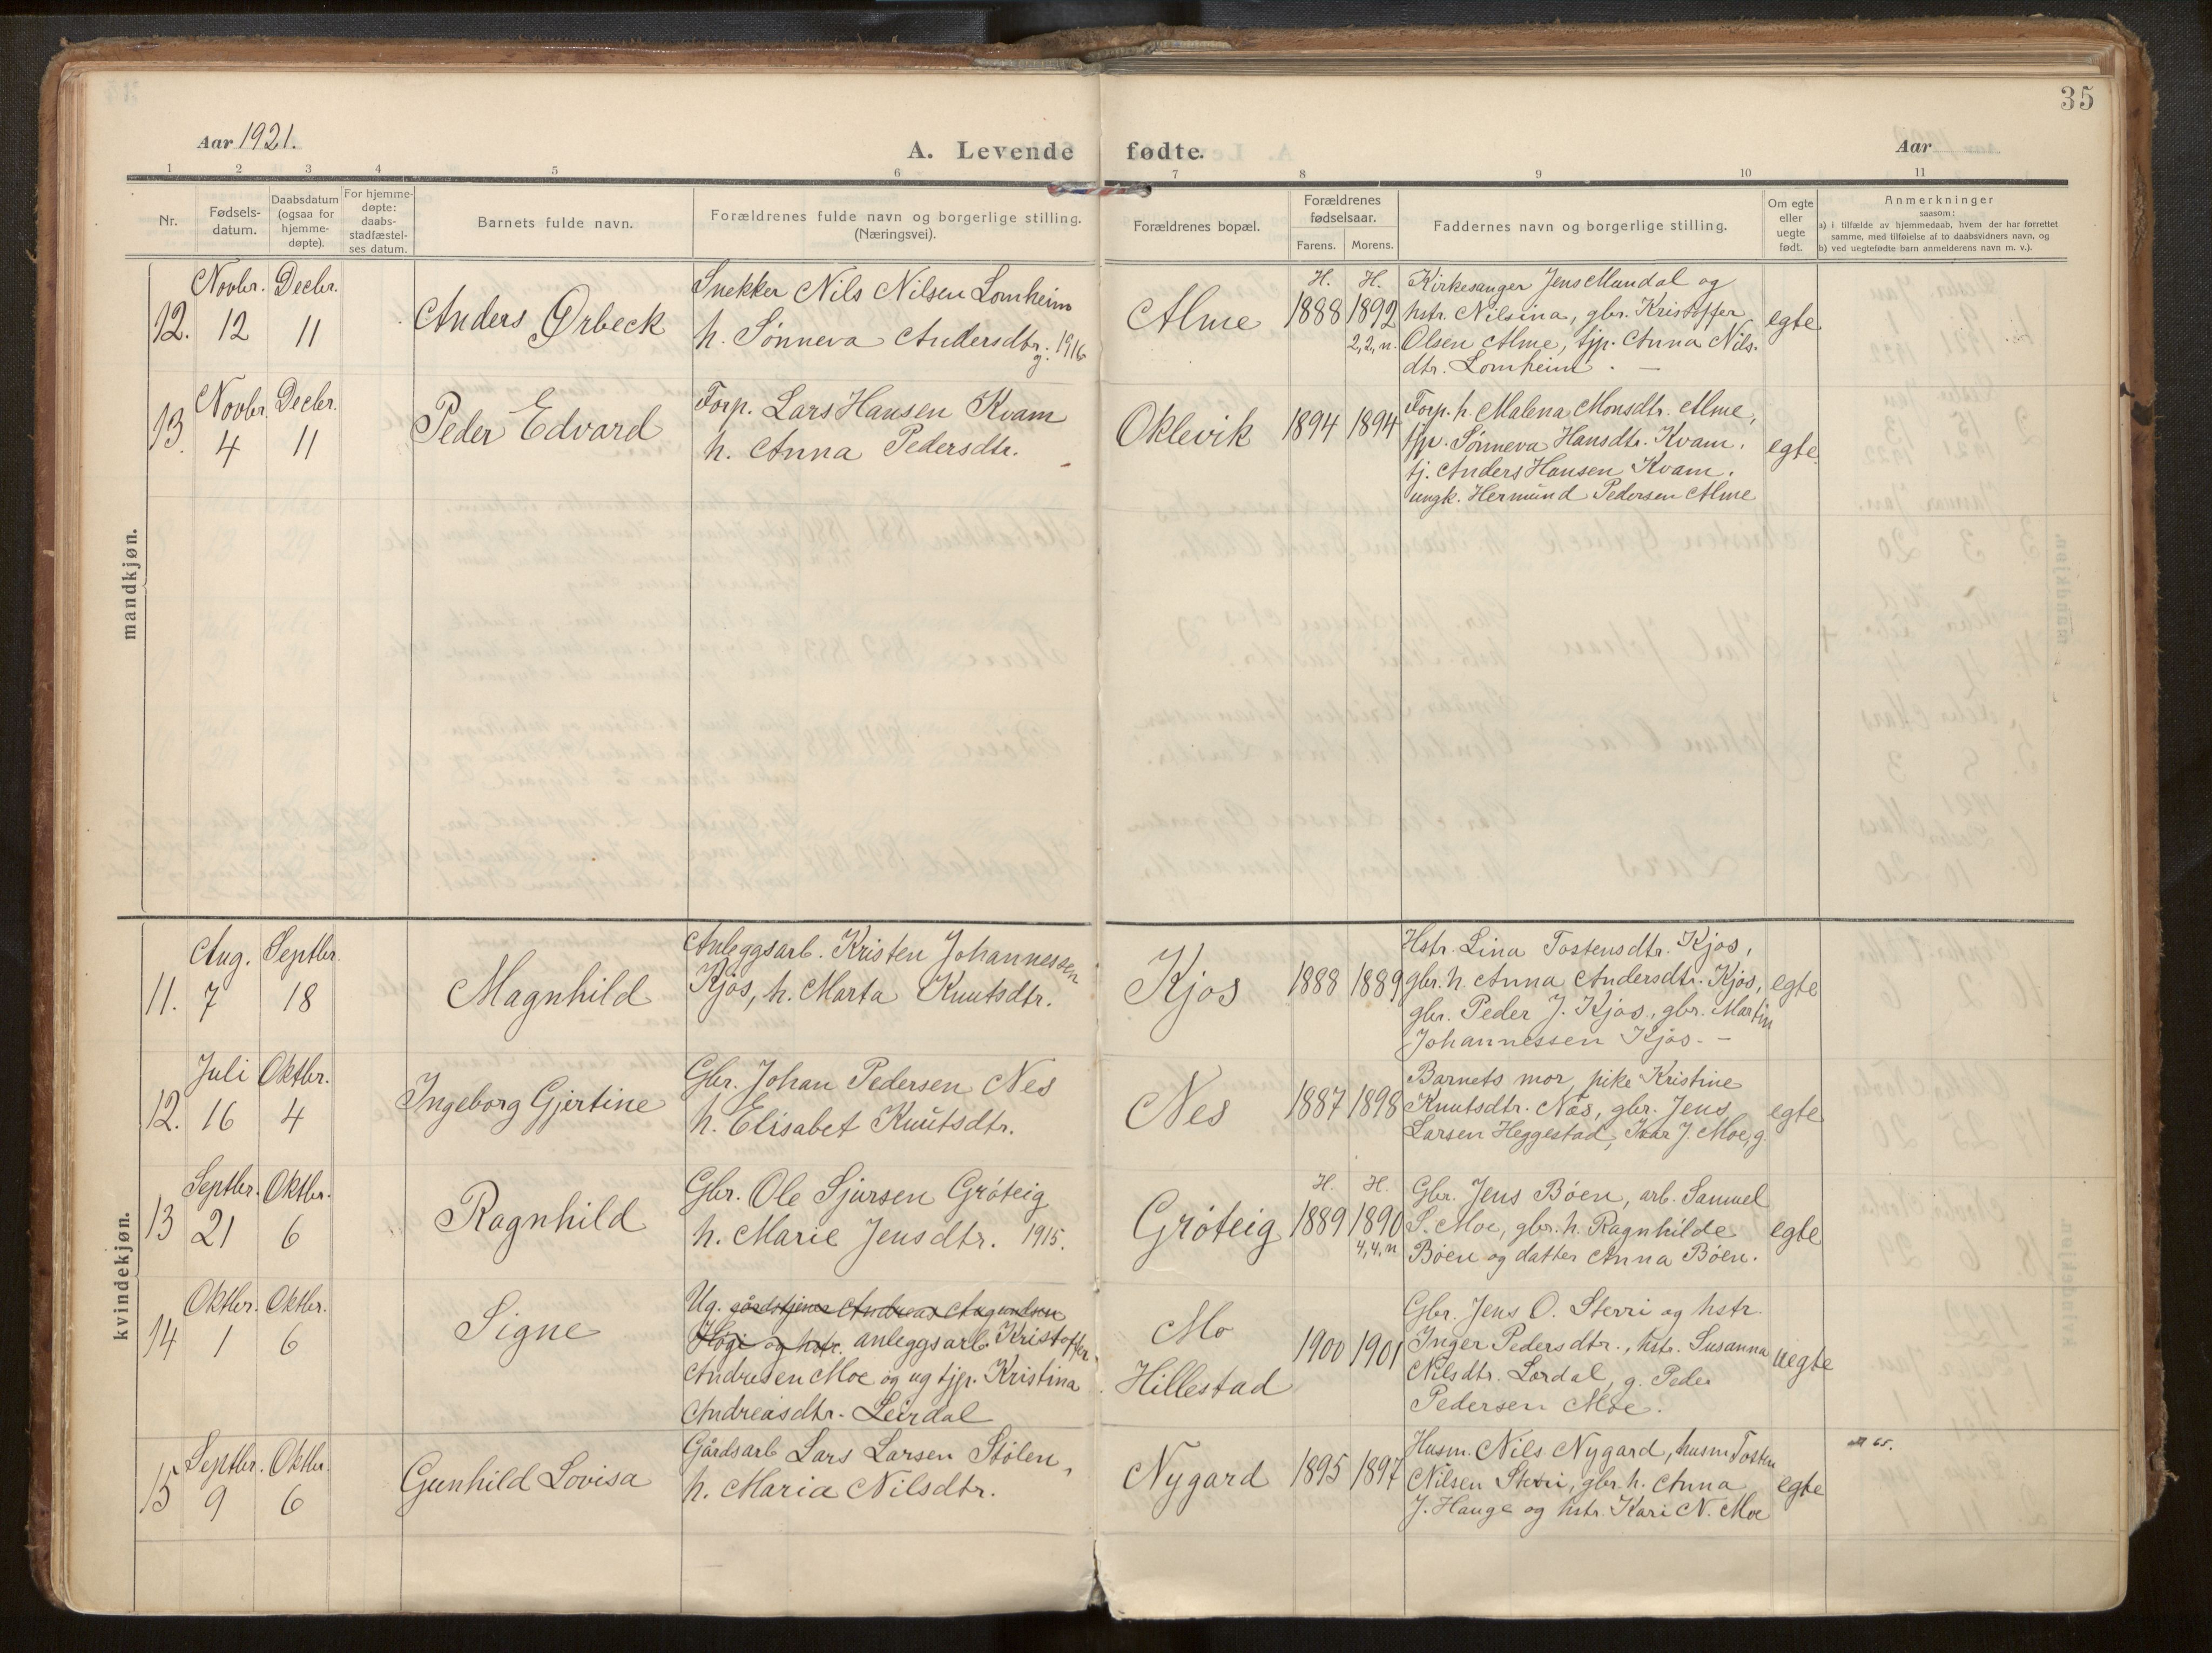 35
Aar 1921.
A. Levende fødte.
Aar
1 2 3 4 5 6 7 8 9 10 11
Nr.
Fødsels-
datum.
Daabsdatum
(ogsaa for
hjemme-
døpte).
For hjemme-
døpte:
daabs-
stadfæstel-
ses datum.
Barnets fulde navn.
Forældrenes fulde navn og borgerlige stilling.
(Næringsvei).
Forældrenes bopæl.
Forældrenes
fødselsaar.
Farens. Morens.
Faddernes navn og borgerlige stilling.
Om egte
eller
uegte
født.
Anmerkninger
saasom:
a) i tilfælde av hjemmedaab, hvem der har forrettet
samme, med tilføielse af to daabsvidners navn, og
b) ved uegtefødte barn anmelderens navn m. v.).
mandkjøn.
12.
Novbr.
12
Decbr.
11
Anders Ørbeck
Snekker Nils Nilsen Lomheim
h. Sønneva Andersdtr.
g. 1916
Alme
H. H.
1888 1892
2,2, n.
Kirkesanger Jens Mundal og
hstr. Nilsina, gbr. Kristoffer
Olsen Alme, tjp. Anna Nils-
dtr. Lomheim. —
egte
13.
Novbr.
4
Decbr.
11
Peder Edvard
Forp. Lars Hansen Kvam
h. Anna Pedersdtr.
Oklevik
1894 1894
Forp. h. Malena Monsdtr. Alme,
tjp. Sønneva Hansdtr. Kvam.
tj. Anders Hansen Kvam.
ungk. Hermund Pedersen Alme
egte.
kvindekjøn.
11.
Aug.
7
Septbr.
18
Magnhild
Anleggsarb. Kristen Johannessen
Kjøs, h. Marta Knutsdtr.
Kjøs
1888 1889
Hstr. Lina Tostensdtr. Kjøs,
gbr. h. Anna Andersdtr. Kjøs,
gbr. Peder J. Kjøs, gbr. Martin
Johannessen Kjøs. -
egte
12.
Juli
16
Oktbr.
4
Ingeborg Gjertine
Gbr. Johan Pedersen Nes
h. Elisabet Knutsdtr.
Nes
1887 1898
Barnets mor, pike Kristine
Knutsdtr. Næs, gbr. Jens
Larsen Heggestad, Ivar J. Moe, g.
egte
13
Septbr.
21
Oktbr.
6
Ragnhild
Gbr. Ole Sjursen Grøteig
h. Marie Jensdtr. 1915.
Grøteig
H. H.
1889 1890
4,4, n
Gbr. Jens Bøen, arb. Samuel
S. Moe, gbr. h. Ragnhilde
Bøen og datter Anna Bøen.
egte
14
Oktbr.
1
Oktbr.
6
Signe
Ug. gårdstjener Andreas Augundsen
og hstr. anleggsarb Kristoffer
Andresen Moe og ug tjp. Kristina
Andreasdtr. Leirdal
Mo
Hillestad
1900 1901
Gbr. Jens O. Sterri og hstr.
Inger Pedersdtr., hstr. Susanna
Nilsdtr. Lørdal, g. Peder
Pedersen Moe.
uegte
15
Septbr.
9
Oktbr.
6
Gunhild Lovisa
Gårdsarb Lars Larsen Stølen,
h. Maria Nilsdtr.
Nygard
1895 1897
Husm. Nils Nygard, husm Tosten
Nilsen Sterri, gbr. h. Anna
J. Hauge og hstr. Kari N. Moe
egte
65.